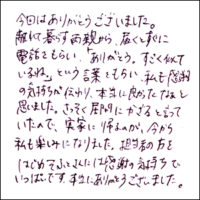 今回はありがとうございました。
離れて暮らす両親から、届くとすぐに
電話をもらい、「ありがとう。すごく似て
いるね。」という言葉をもらい、私も感謝
の気持ちが伝わり、本当に良かったなぁと
思いました。さっそく居間にかざると言って
いたので、実家に帰るのが、今から
私も楽しみになりました。担当者の方を
はじめ、みなさんには感謝の気持ちで
いっぱいです。本当にありがとうございました。